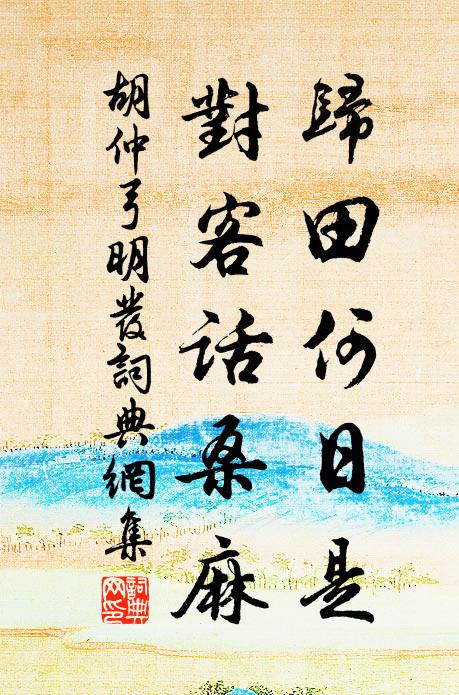 歸田何日是
對客話桑麻
胡仲弓明發詞典網集